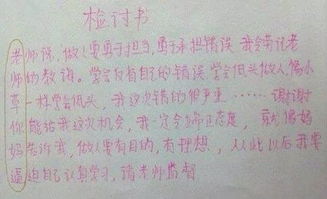 检讨书
老师说，做人要勇于担当，勇于承担错误 我会牢记老
师的教诲。学会反省自己的错误 学会低头做人像小
草一样学会低头，我这次错的很严重……谢谢
你能给我这次机会，我一定会端正态度，就像妈
妈告诉我，做人要有目的，有理想，从此以后我要
逼迫自己认真学习，请老师监督